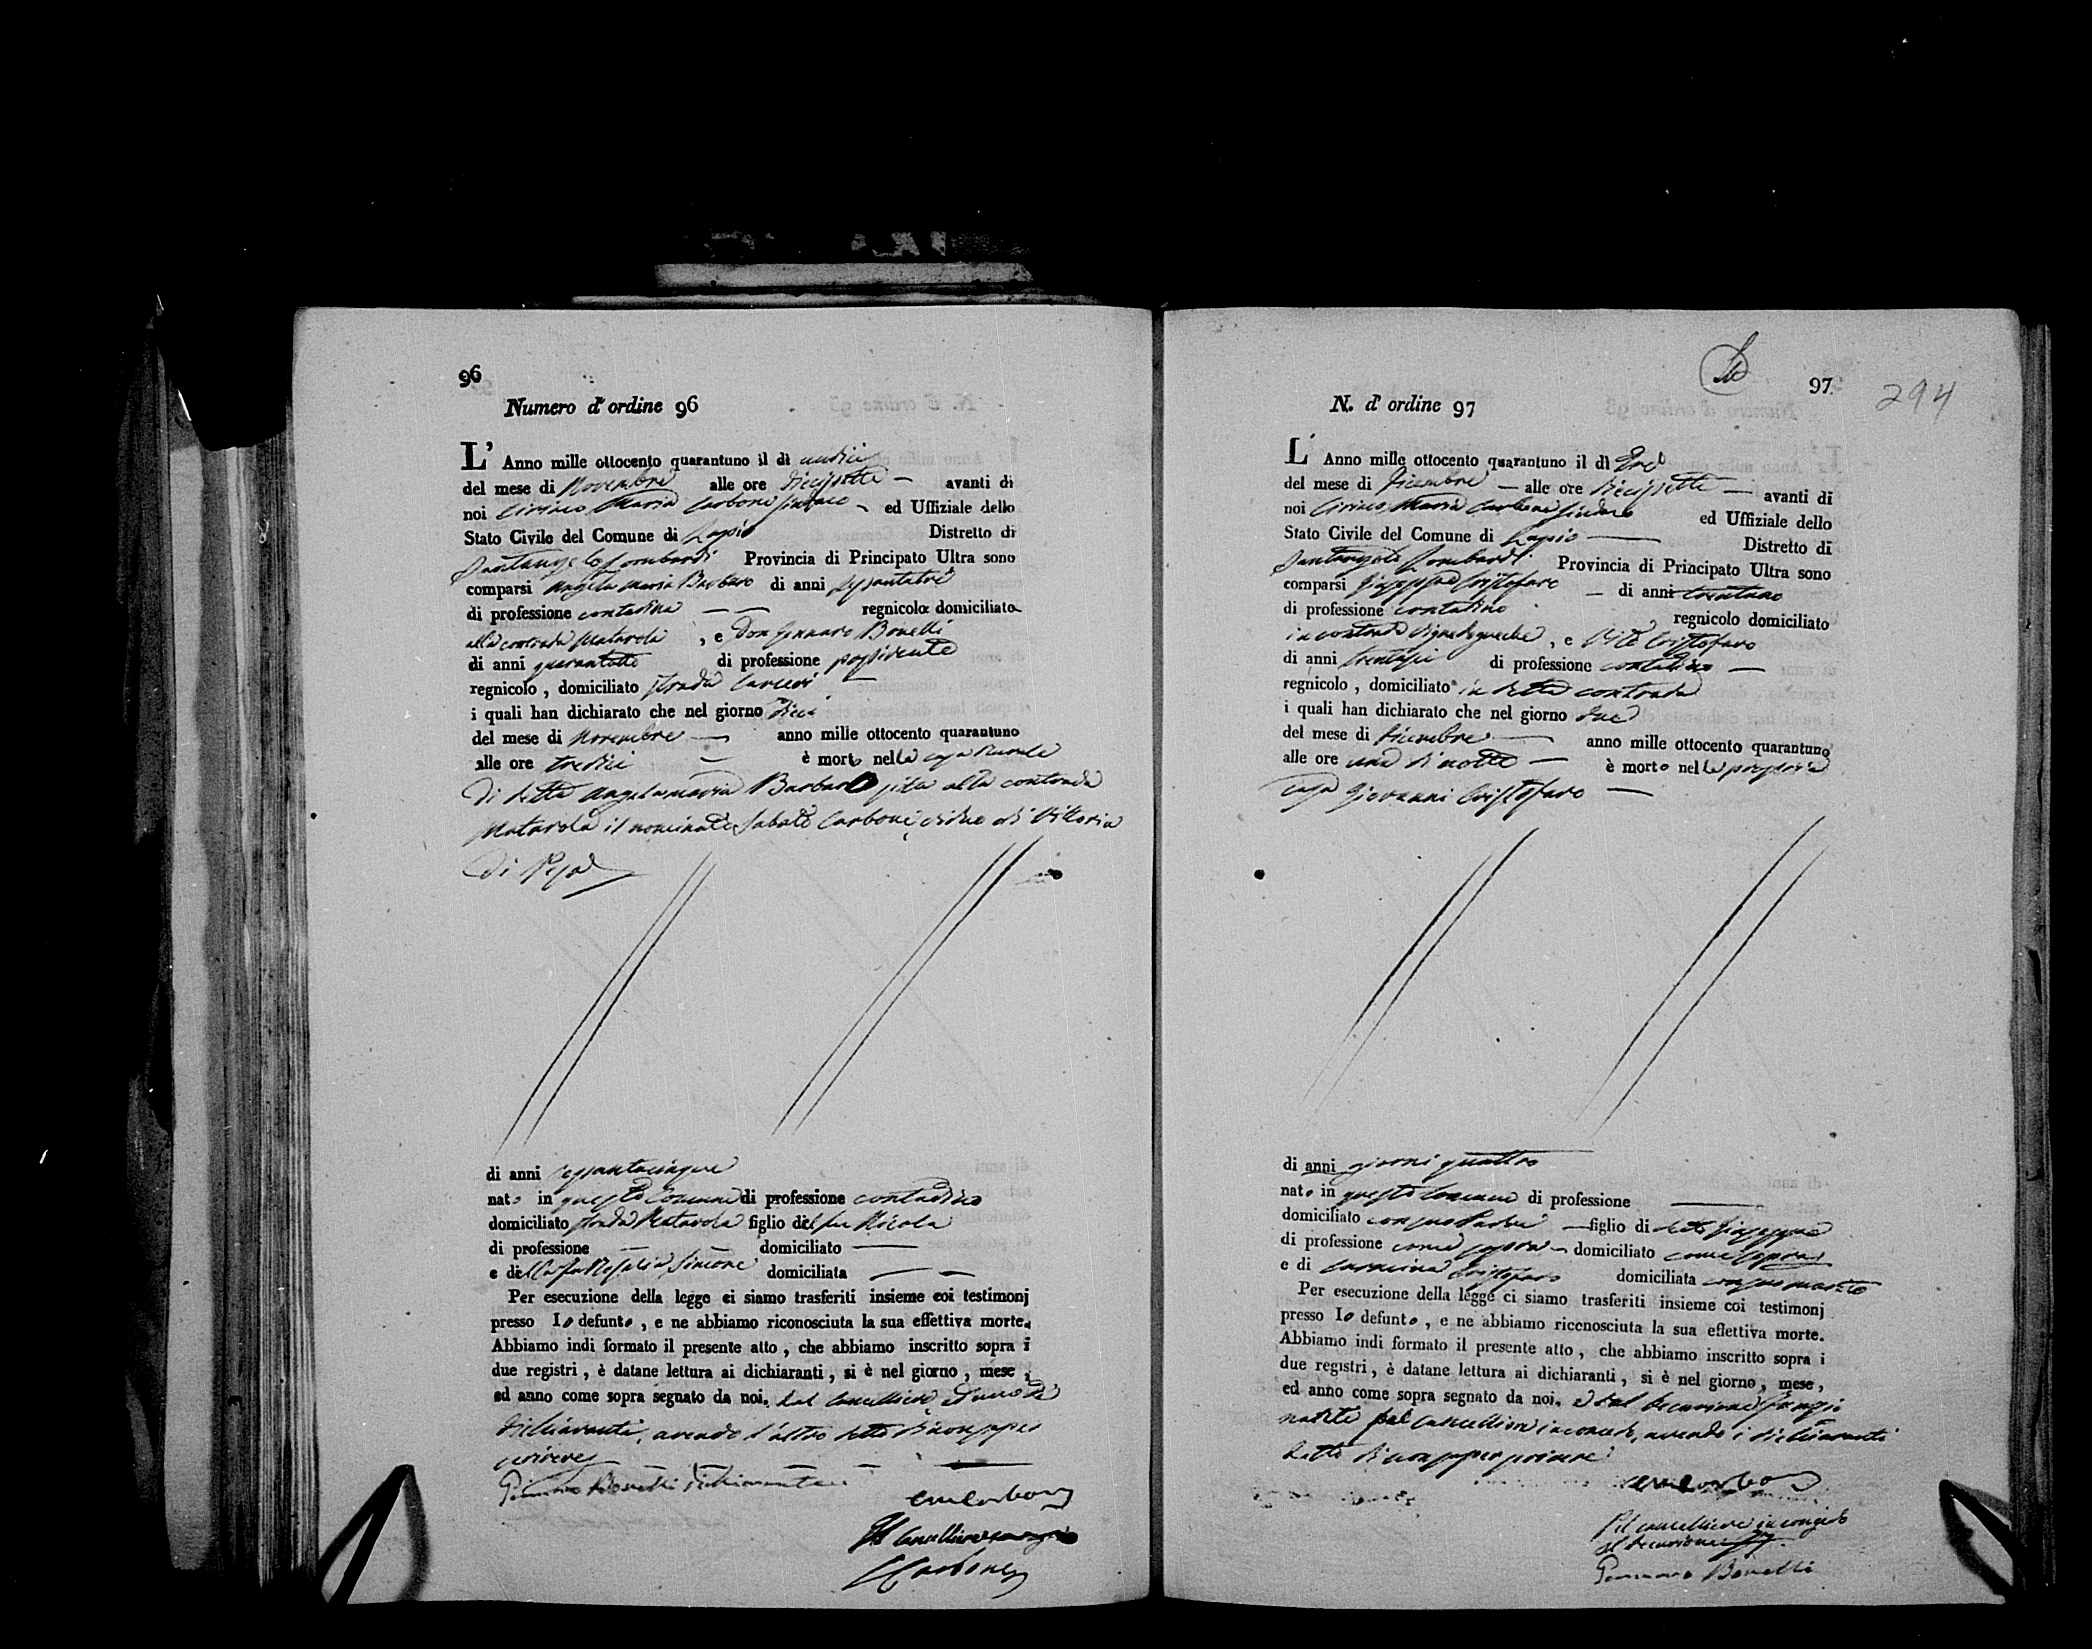 96
Numero d' ordine 96
L' Anno mille ottocento quarantuno il dì undici
del mese di Novembre alle ore diecisette avanti di
noi Ciriaco Maria Carbone Sindaco ed Uffiziale dello
Stato Civile del Comune di Lapio Distretto di
Santangelo Lombardi Provincia di Principato Ultra sono
comparsi Angela Maria Barbaro di anni sessantatre
di professione contadina regnicola domiciliata
alla contrada Matarola , e Don Gennaro Bonelli
di anni quarantotto di professione possidente
regnicolo , domiciliato strada Carceri
i quali han dichiarato che nel giorno dieci
del mese di Novembre anno mille ottocento quarantuno
alle ore tredici è morto nella casa rurale
di detta Angelamaria Barbaro sita alla contrada
Matarola il nominato Sabato Carbone, vedovo di Vittoria
di
di anni sessantacinque
nato in questo Comune di professione contadino
domiciliato strada Matarola figlio del fu Nicola
di professione domiciliato
e della fu Rosolia Simone domiciliata
Per esecuzione della legge ci siamo trasferiti insieme coi testimonj
presso lo defunto , e ne abbiamo riconosciuta la sua effettiva morte.
Abbiamo indi formato il presente atto , che abbiamo inscritto sopra i
due registri , è datane lettura ai dichiaranti , si è nel giorno , mese ,
ed anno come sopra segnato da noi, dal Cancelliere, e uno de'
dichiaranti, avendo l'altro detto di non saper
scrivere
Gennaro Bonelli dichiarante
CMCarbone
Il Cancelliere
Carbone
97
294
N. d' ordine 97
L' Anno mille ottocento quarantuno il dì tre
del mese di Dicembre alle ore diecisette avanti di
noi Ciriaco Maria Carbone Sindaco ed Uffiziale dello
Stato Civile del Comune di Lapio Distretto di
Santangelo Lombardi Provincia di Principato Ultra sono
comparsi Giuseppe Cristofaro di anni trentuno
di professione contadino regnicolo domiciliato
in contrada , e Vito Cristofaro
di anni trentasei di professione contadino
regnicolo , domiciliato in detta contrada
i quali han dichiarato che nel giorno due
del mese di Dicembre anno mille ottocento quarantuno
alle ore una di notte è morto nella propria
casa Giovanni Cristofaro
di anni giorni quattro
nato in questo Comune di professione
domiciliato con suo Padre figlio di detto Giuseppe
di professione come sopra domiciliato come sopra
e di Carmina Cristofaro domiciliata con suo marito
Per esecuzione della legge ci siamo trasferiti insieme coi testimonj
presso lo defunto , e ne abbiamo riconosciuta la sua effettiva morte.
Abbiamo indi formato il presente atto , che abbiamo inscritto sopra i
due registri , è datane lettura ai dichiaranti , si è nel giorno , mese ,
ed anno come sopra segnato da noi. e dal Decurione funzio
nante pel Cancelliere in congedo, avendo i dichiaranti
detto di non saper scrivere
CMCarbone
Pel cancelliere in congedo
Il decurione
Gennaro Bonelli